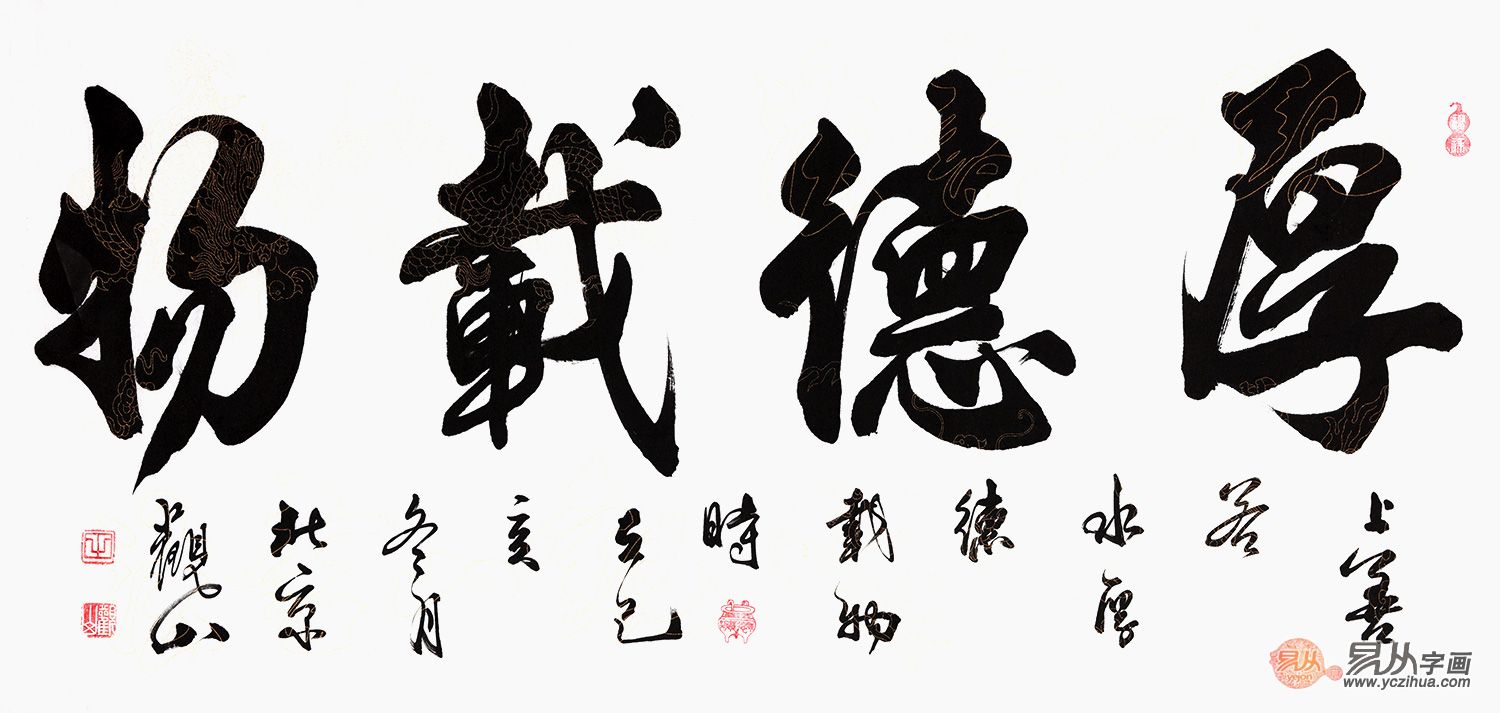 厚德載物
上善
若
水厚
德
載物
時
在己
亥
冬月
北京
觀山
易从字画
yicong
www.yczihua.com